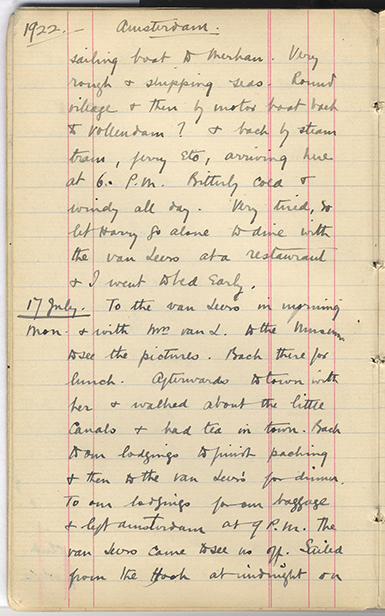 1922.- Amsterdam.
sailing boat to Merken. Very
rough & shipping seas. Round
village & then by motor boat back
to Vollendam? & back by steam
tram, ferry etc, arriving here
at 6. P.M. Bitterly cold &
windy all day. Very tired, so
let Harry go alone to dine with
the van Leers at a restaurant
& I went to bed Early.
17 July. To the van Leers in morning
Mon. & with Mrs van L. to the Museum
to see the pictures. Back there for
lunch. Afterwards to town with
her & walked about the little
Canals & had tea in town. Back
to our lodgings to finish packing
& then to the van Leers for dinner.
To our lodgings for our baggage
& left Amsterdam at 9 P.M. The
van Leers came to see us off. Sailed
from the Hook at midnight on